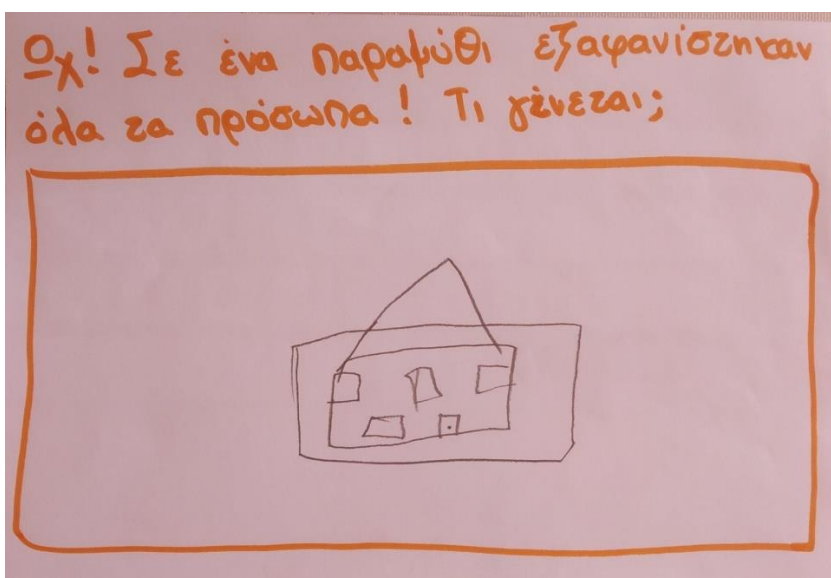 Ωχ! Σε ένα παραμύθι εξαφανίστηκαν
όλα τα πρόσωπα! Τι γίνεται;